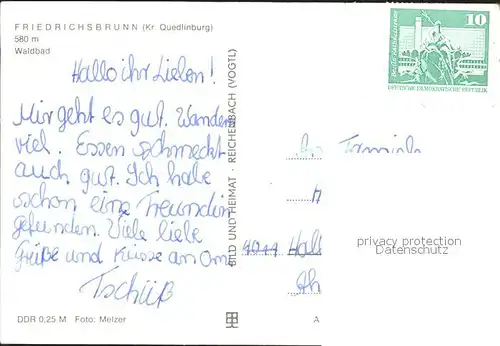 FRIEDRICHSBRUNN (Kr Quedlinburg)
580 m
Waldbad
Hallo ihr Lieben!
Mir geht es gut. Wandern
viel. Essen schmeckt
auch gut. Ich habe
schon eine Freundin
gefunden. Viele liebe
Grüße und Küsse an Omi
Tschüß
DDR 0,25 M Foto: Melzer
BILD UND HEIMAT · REICHENBACH (VOGTL)
10
DEUTSCHE DEMOKRATISCHE REPUBLIK
Familie
Hall
privacy protection
Datenschutz
A